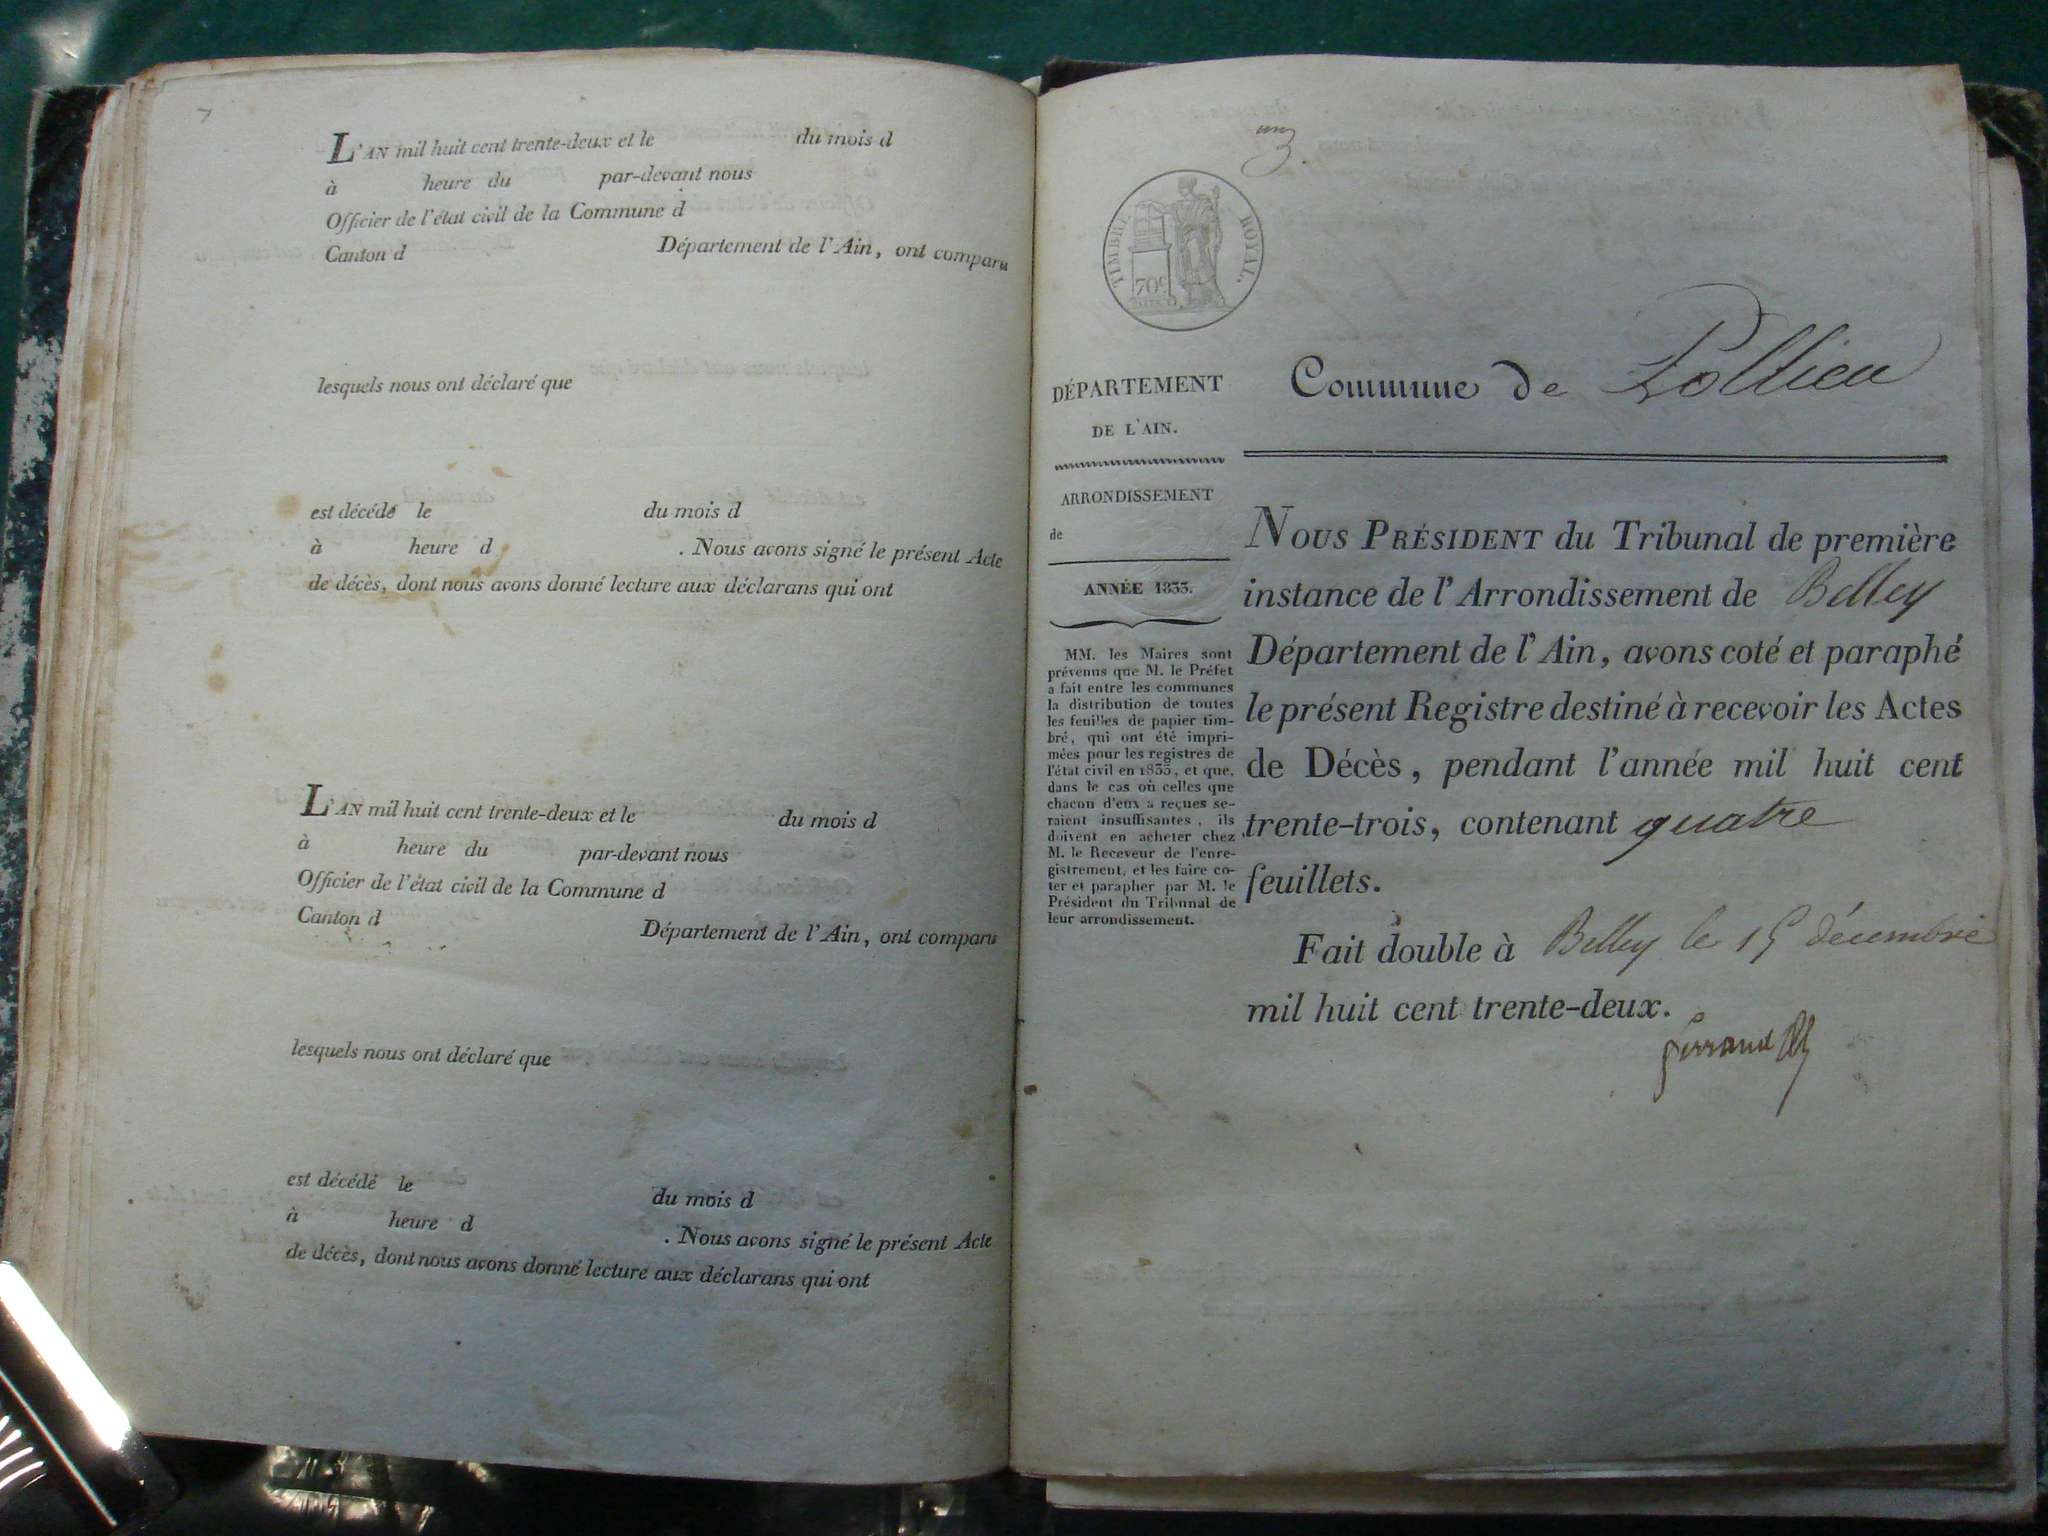 L'AN mil huit cent trente-deux et le du mois d
à heure du par-devant nous
Officier de l'état civil de la Commune d
Canton d Département de l'Ain, ont comparu
lesquels nous ont déclaré que
est décédé le du mois d
à heure d . Nous avons signé le présent Acte
de décès, dont nous avons donné lecture aux déclarans qui ont
L'AN mil huit cent trente-deux et le du mois d
à heure du par-devant nous
Officier de l'état civil de la Commune d
Canton d Département de l'Ain, ont comparu
lesquels nous ont déclaré que
est décédé le du mois d
à heure d . Nous avons signé le présent Acte
de décès, dont nous avons donné lecture aux déclarans qui ont
TIMBRE ROYAL.
70c
DÉPARTEMENT
DE L'AIN.
ARRONDISSEMENT
de
ANNÉE 1833.
MM. les Maires sont
prévenus que M. le Préfet
a fait entre les communes
la distribution de toutes
les feuilles de papier tim-
bré, qui ont été impri-
mées pour les registres de
l'état civil en 1833, et que,
dans le cas où celles que
chacun d'eux a reçues se-
raient insuffisantes, ils
doivent en acheter chez
M. le Receveur de l'enre-
gistrement, et les faire co-
ter et parapher par M. le
Président du Tribunal de
leur arrondissement.
Commune de Pollieu
NOUS PRÉSIDENT du Tribunal de première
instance de l'Arrondissement de Belley
Département de l'Ain, avons coté et paraphé
le présent Registre destiné à recevoir les Actes
de Décès, pendant l'année mil huit cent
trente-trois, contenant quatre
feuillets.
Fait double à Belley le 15 décembre
mil huit cent trente-deux.